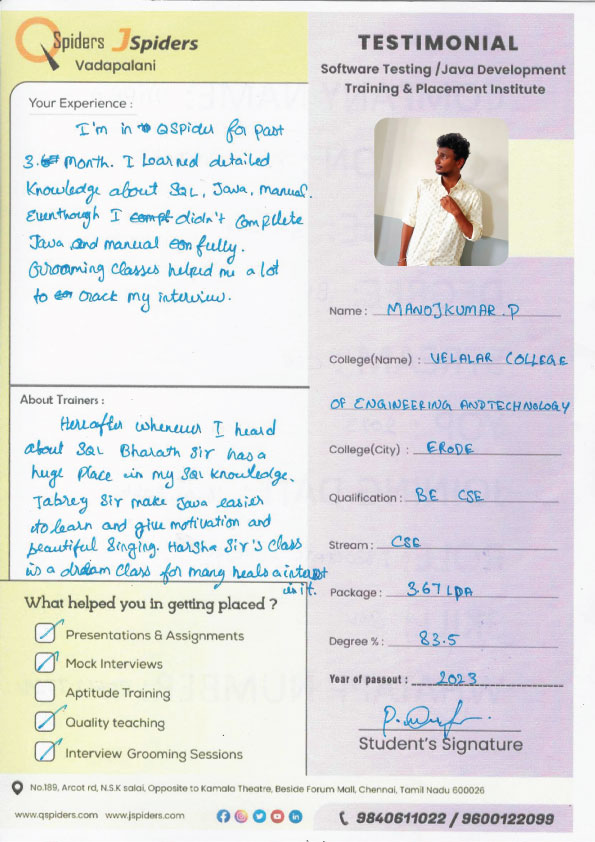 QSpiders JSpiders
Vadapalani
Your Experience :
I'm in QSpider for past
3. month. I Learned detailed
knowledge about SQL, Java, manual.
Eventhough I didn't complete
Java and manual fully.
Grooming classes helped me a lot
to crack my interview.
About Trainers :
Hereafter whenever I heard
about SQL Bharath Sir has a
huge place in my SQL knowledge.
Tabrez Sir make Java easier
to learn and give motivation and
beautiful Singing. Harsha Sir's class
is a dream class for many he a interest
in it.
What helped you in getting placed ?
Presentations & Assignments
Mock Interviews
Aptitude Training
Quality teaching
Interview Grooming Sessions
TESTIMONIAL
Software Testing /Java Development
Training & Placement Institute
Name : MANOJKUMAR.P
College(Name) : VELALAR COLLEGE
OF ENGINEERING AND TECHNOLOGY
College(City) : ERODE
Qualification : BE CSE
Stream : CSE
Package : 3.67 LPA
Degree % : 83.5
Year of passout : 2023
Student's Signature
No.189, Arcot rd, N.S.K salai, Opposite to Kamala Theatre, Beside Forum Mall, Chennai, Tamil Nadu 600026
www.qspiders.com www.jspiders.com
9840611022 / 9600122099